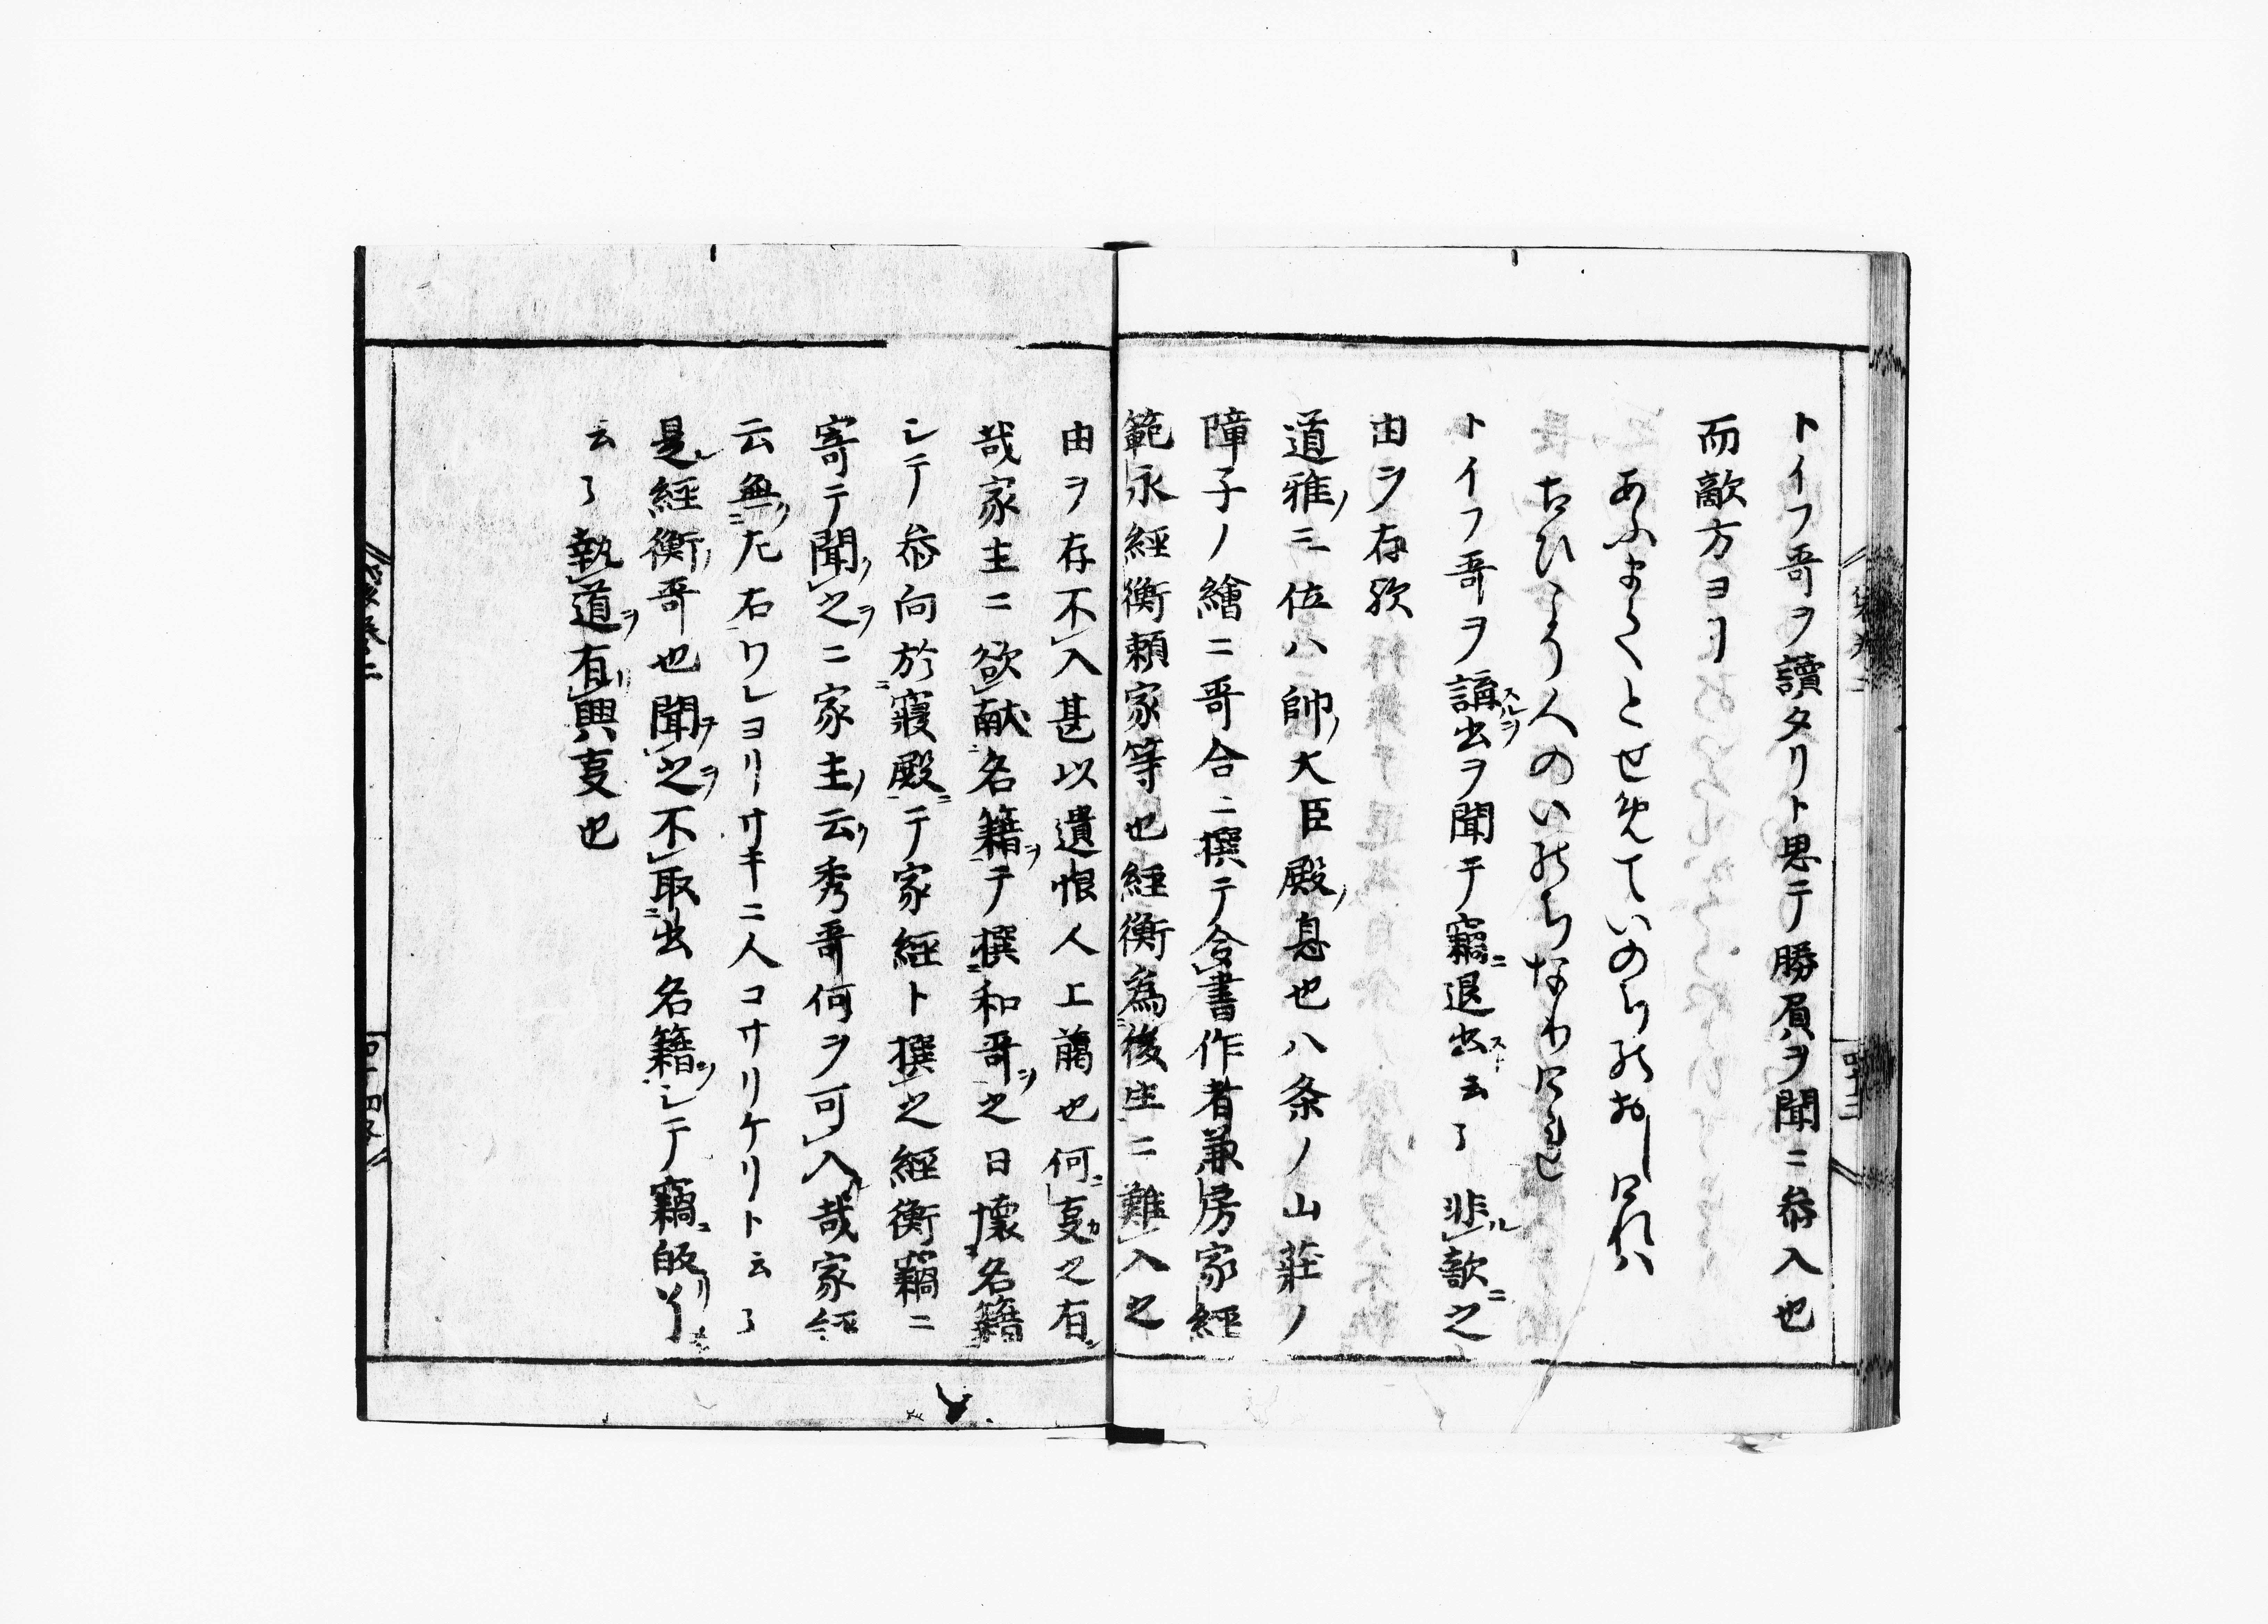 トイフ哥ヲ讀タリト思テ勝屓ヲ聞ニ叅入也
而敵方ヨリ
あふまてとせめていのちのおしけれハ
こひこそ人のいのちなりけれ
トイフ哥ヲ講出スルヲヲ聞テ竊ニ退出スト云々非ル歌ニ之
由ヲ存歟
道雅ノ三位ハ帥ノ大臣殿ノ息也八条ノ山莊ノ
障子ノ繪ニ哥合ニ撰テ令書作者兼房家經
範永經衡頼家等也經衡為後生ニ難入之
由ヲ存不入甚以遺恨人上﨟也何ニ叓カ之有
哉家主ニ欲献名籍ヲテ撰和哥ヲ之日懐名籍
シテ叅向於寢殿ニテ家經ト撰之經衡竊ニ
寄テ聞ク之ヲニ家主ノ云ク秀哥何ヲ可入ル哉家經
云無ク左右ワレヨリサキニ人コサリケリト云々
是レ經衡ノ哥也聞ヲ之ヲ不取出名籍ヲシテ竊ニ皈リ
云々執道ヲ有リ興叓也